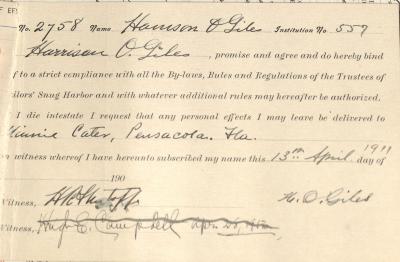 No. 2758 Name Harrison O Giles Institution No. 557
Harrison O. Giles, promise and agree and do hereby bind
f to a strict compliance with all the By-laws, Rules and Regulations of the Trustees of
ilors' Snug Harbor and with whatever additional rules may hereafter be authorized.
I die intestate I request that any personal effects I may leave be delivered to
Minnie Cater, Pensacola. Fla.
n witness whereof I have hereunto subscribed my name this 13th April 1911 day of
190
Witness, H. O. Giles
Witness, Hugh E. Campbell